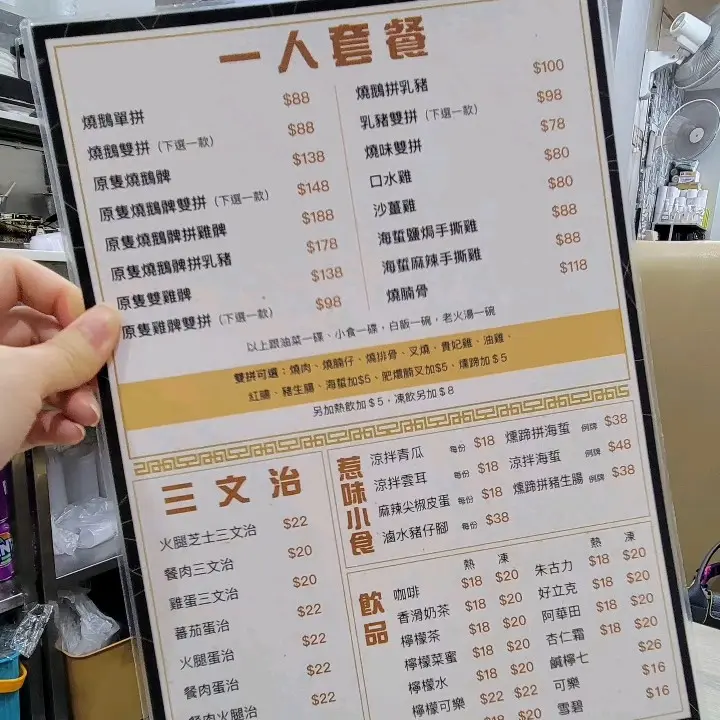 一人套餐
燒鵝單拼 $88
燒鵝雙拼（下選一款） $88
原隻燒鵝髀 $138
原隻燒鵝髀雙拼（下選一款） $148
原隻燒鵝髀拼雞髀 $188
原隻燒鵝髀拼乳豬 $178
原隻雙雞髀 $138
原隻雞髀雙拼（下選一款） $98
燒鵝拼乳豬 $100
乳豬雙拼（下選一款） $98
燒味雙拼 $78
口水雞 $80
沙薑雞 $80
海蜇鹽焗手撕雞 $88
海蜇麻辣手撕雞 $88
燒腩骨 $118
以上跟油菜一碟、小食一碟，白飯一碗，老火湯一碗
雙拼可選：燒肉、燒腩仔、燒排骨、叉燒、貴妃雞、油雞、
紅腸、豬生腸、海蜇加$5、肥燶腩叉加$5、燻蹄加$5
另加熱飲加$5，凍飲另加$8
三文治
火腿芝士三文治 $22
餐肉三文治 $20
雞蛋三文治 $20
蕃茄蛋治 $22
火腿蛋治 $22
餐肉蛋治 $22
餐肉火腿治 $22
惹味小食
涼拌青瓜 每份 $18
涼拌雲耳 每份 $18
麻辣尖椒皮蛋 每份 $18
滷水豬仔腳 每份 $38
燻蹄拼海蜇 例牌 $38
涼拌海蜇 例牌 $48
燻蹄拼豬生腸 例牌 $38
飲品
熱 凍
咖啡 $18 $20
香滑奶茶 $18 $20
檸檬茶 $18 $20
檸檬菜蜜 $18 $20
檸檬水 $18 $20
檸檬可樂 $22 $22
$18 $20
熱 凍
朱古力 $18 $20
好立克 $18 $20
阿華田 $18 $20
杏仁霜 $18 $20
鹹檸七 $26
可樂 $16
雪碧 $16